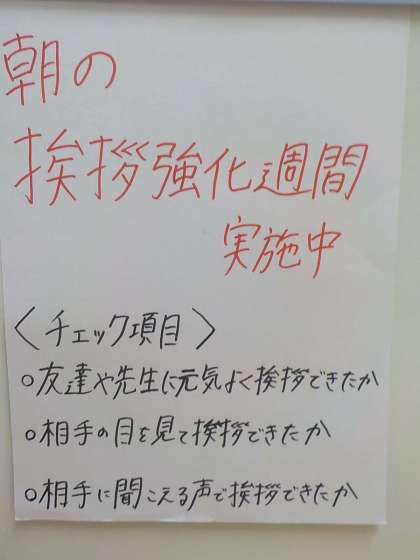 朝の
挨拶強化週間
実施中
〈チェック項目〉
○友達や先生に元気よく挨拶できたか
○相手の目を見て挨拶できたか
○相手に聞こえる声で挨拶できたか